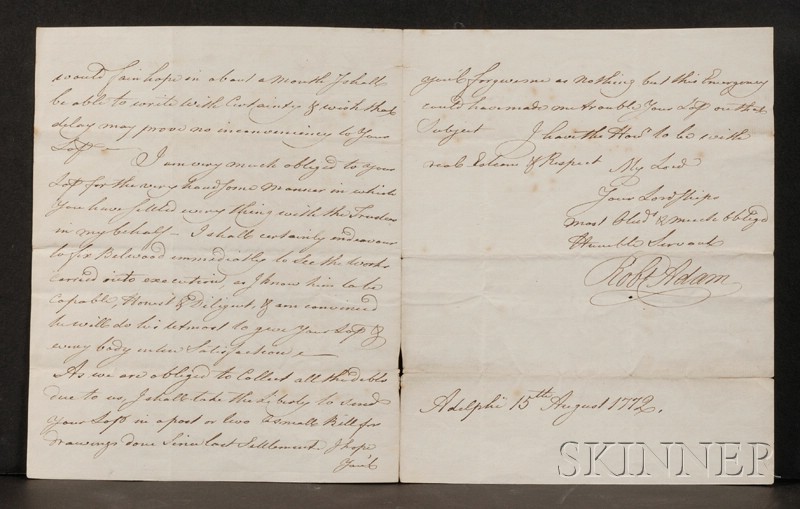 would fain hope in about a Month I shall
be able to write with Certainty & wish that
delay may prove no inconveniency to Your
Losp —
I am very much obliged to your
Losp for the very handsome manner in which
You have settled every thing with the Trustees
in my behalf — I shall certainly endeavour
to fix Belwood immediately to See the works
carried into execution, as I know him to be
Capable, Honest & Diligent, & am convinced
he will do his utmost to give Your Losp &
every body else Satisfaction —
As we are obliged to Collect all the debts
due to us, I shall take the Liberty to send
your Losp in a post or two a small Bill for
drawings done Since last Settlement I hope
You'l
you'l forgive me as nothing but this Emergency
could have made me trouble Your Losp on that
Subject I have the Honr to be with
real Esteem & Respect My Lord
Your Lordships
most Obedt & much Obliged
Humble Servant
Robt Adam
Adelphi 15th August 1772.
SKINNER